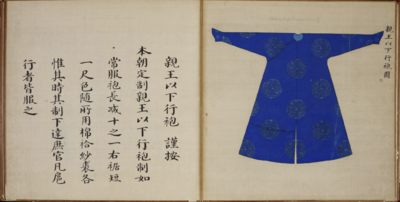 親王以下行袍圖
親王以下行袍 謹按
本朝定制親王以下行袍制如
常服袍長減十之一右裾短
一尺色隨所用棉袷紗裘各
惟其時其制下達庶官凡扈
行者皆服之